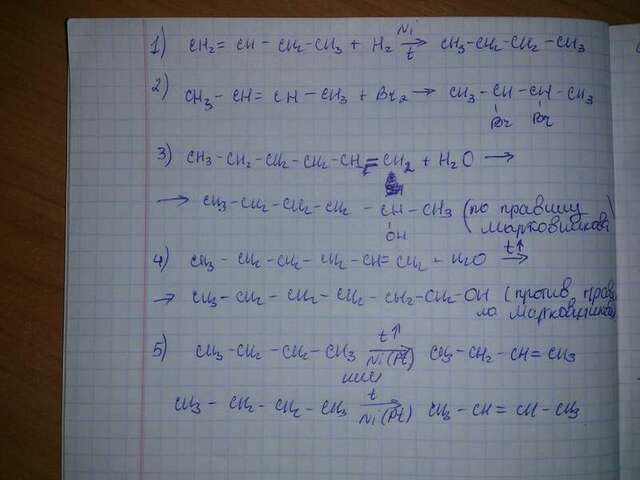 1) CH2 = CH - CH2 - CH3 + H2 Ni→t CH3 - CH2 - CH2 - CH3
2) CH3 - CH = CH - CH3 + Br2 → CH3 - CH - CH - CH3
Br Br
3) CH3 - CH2 - CH2 - CH2 - CH = CH2 + H2O →
→ CH3 - CH2 - CH2 - CH2 - CH - CH3 (по правилу
OH Марковникова)
4) CH3 - CH2 - CH2 - CH2 - CH = CH2 + H2O t↑→
→ CH3 - CH2 - CH2 - CH2 - CH2 - CH2 - OH (против прави
ла Марковникова)
5) CH3 - CH2 - CH2 - CH3 t↑→Ni(Pt) CH3 - CH2 - CH = CH3
или
CH3 - CH2 - CH2 - CH3 t→Ni(Pt) CH3 - CH = CH - CH3